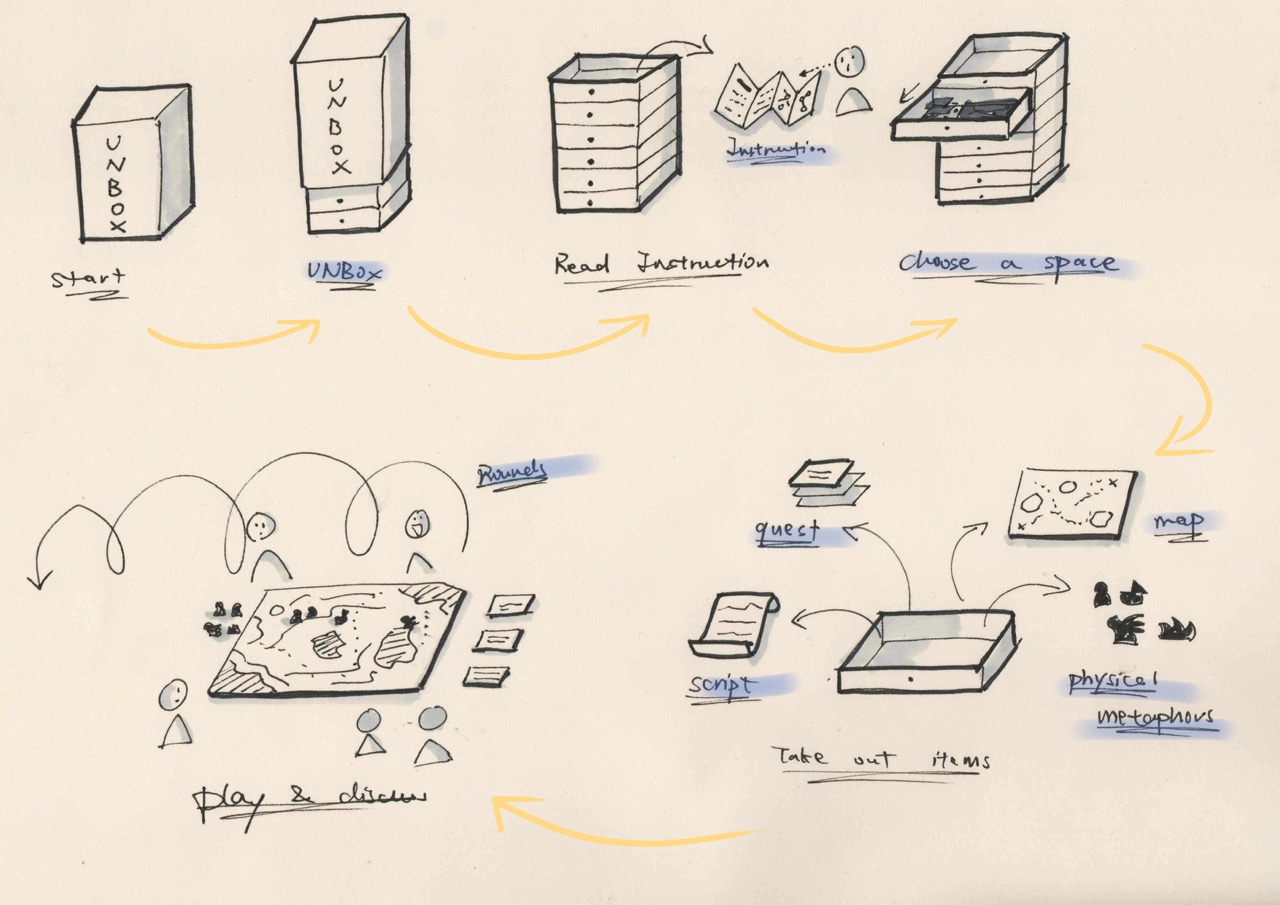 UNBOX
UNBOX
Instruction
Start
UNBox
Read Instruction
Choose a space
Rounds
quest
map
script
physical
metaphors
Take out items
play & discuss